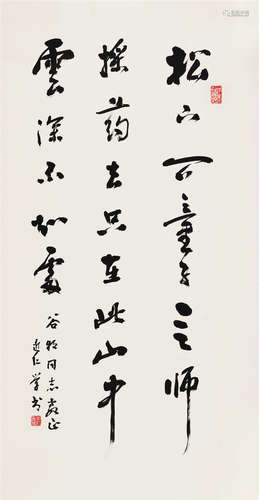 松下问童子言师
採药去只在此山中
雲深不知處
谷牧同志教正
仁学书